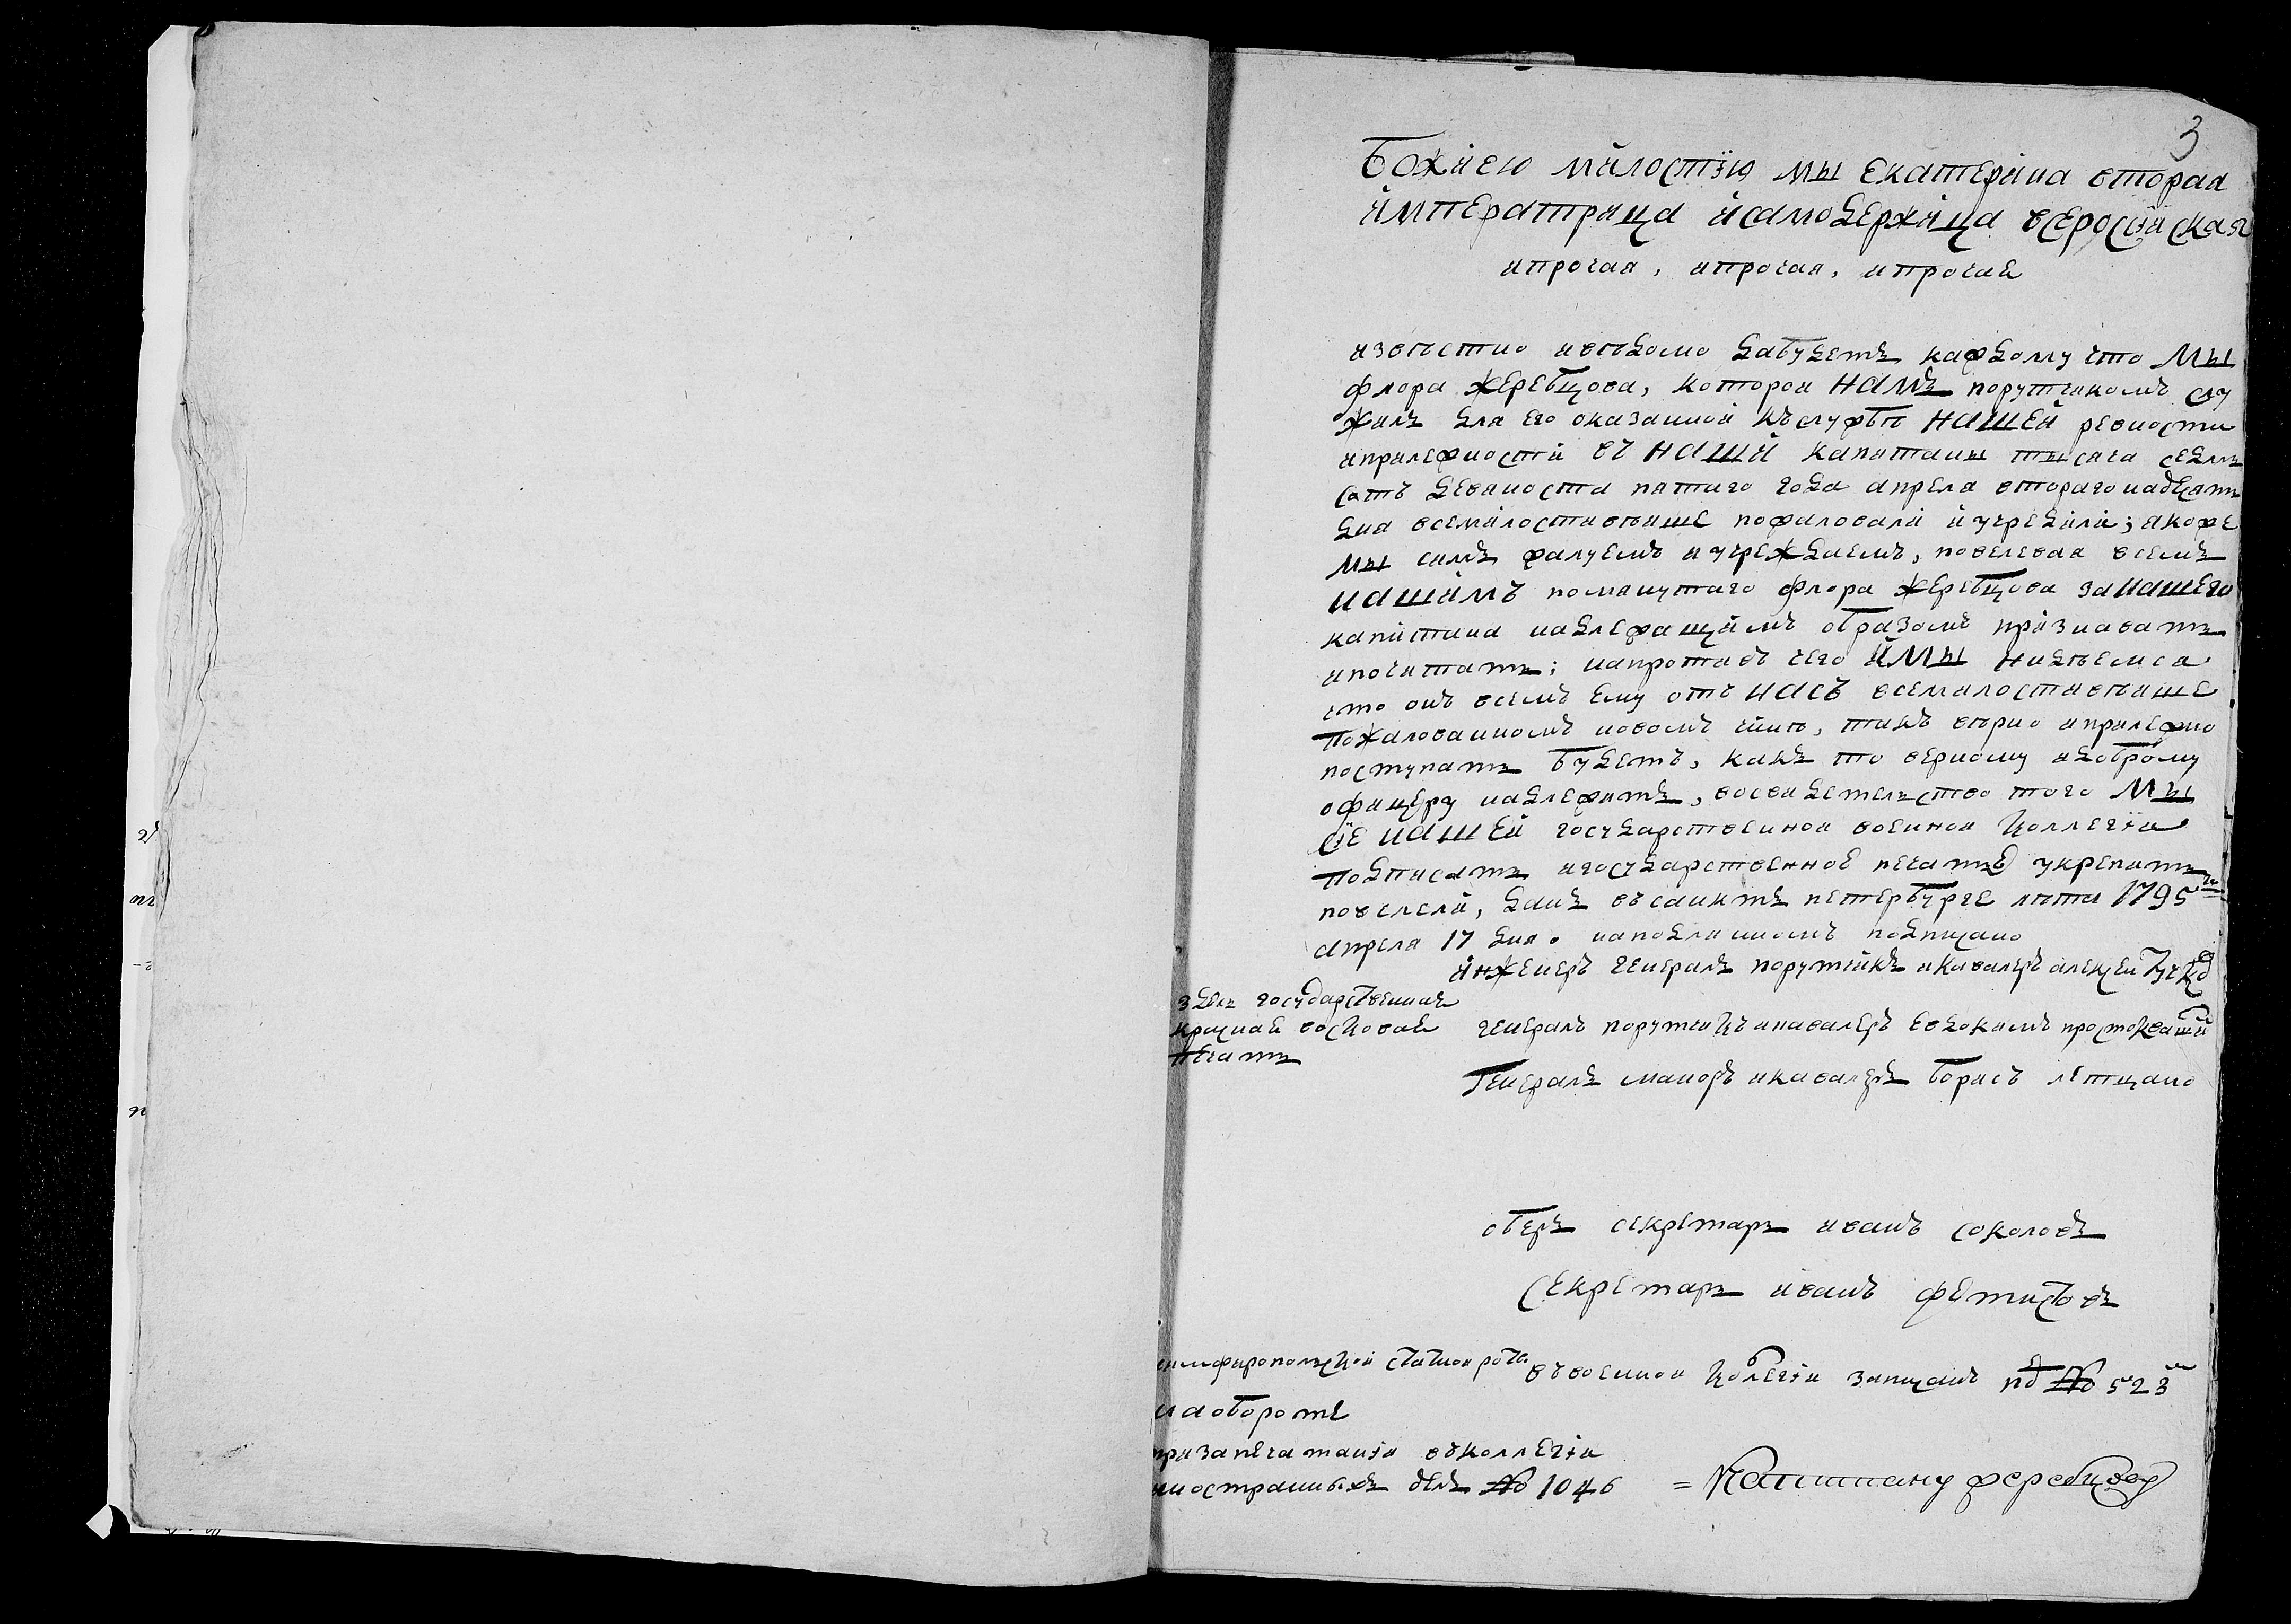 3
Божиею милостїю мы екатерина вторая
императрица исамодержица всеросїйская
ипрочая, ипрочая, ипрочая
извѣстно ивѣдомо дабудетъ каждому что МЫ
флора жеребцова, которой НАМЪ порутчикомъ слу
жилъ для его оказанной къслужбѣ НАШЕЙ ревности
иприлежности въ НАШИ капитаны тысяча седмь
сотъ девяноста пятаго года апреля второгонадцать
дня всемилостивѣише пожаловали иучредили; якоже
МЫ симъ жалуемъ иучреждаемъ, повелевая всемъ
НАШИМЪ помянутаго флора жеребцова заНАШЕГО
капитана надлежащимъ образомъ признавать
ипочитать; напротивъ чего ИМЫ надѣемся
что онъ всемъ ему отъ НАСЪ всемилостивѣише
пожалованномъ новомъ чинѣ, такъ вѣрно иприлежно
поступать будетъ, какъ то верному идоброму
офицеру надлежитъ, восвидетельство того МЫ
сїе НАШЕЙ государственной военной коллегїи
подписать игосударственною печатью укрепить
повелели, данъ всанктъ петербурге лѣта 1795го
апреля 17 дня. наподлинномъ подписано
инженеръ генералъ порутчикъ икавалеръ алексеи тучковъ
удель государственная
красная восковая
печать
генералъ порутчикъ икавалеръ евдокимъ
генералъ маиоръ икавалеръ борисъ летцано
оберъ секретарь иванъ соколовъ
секретарь иванъ фетисовъ
симфиропольской
ввоенной колегїи записанъ под № 523м
наоборотѣ
призапечатанїи вколлегїи
иностранныхъ делъ № 1046
= Капитану жеребцову